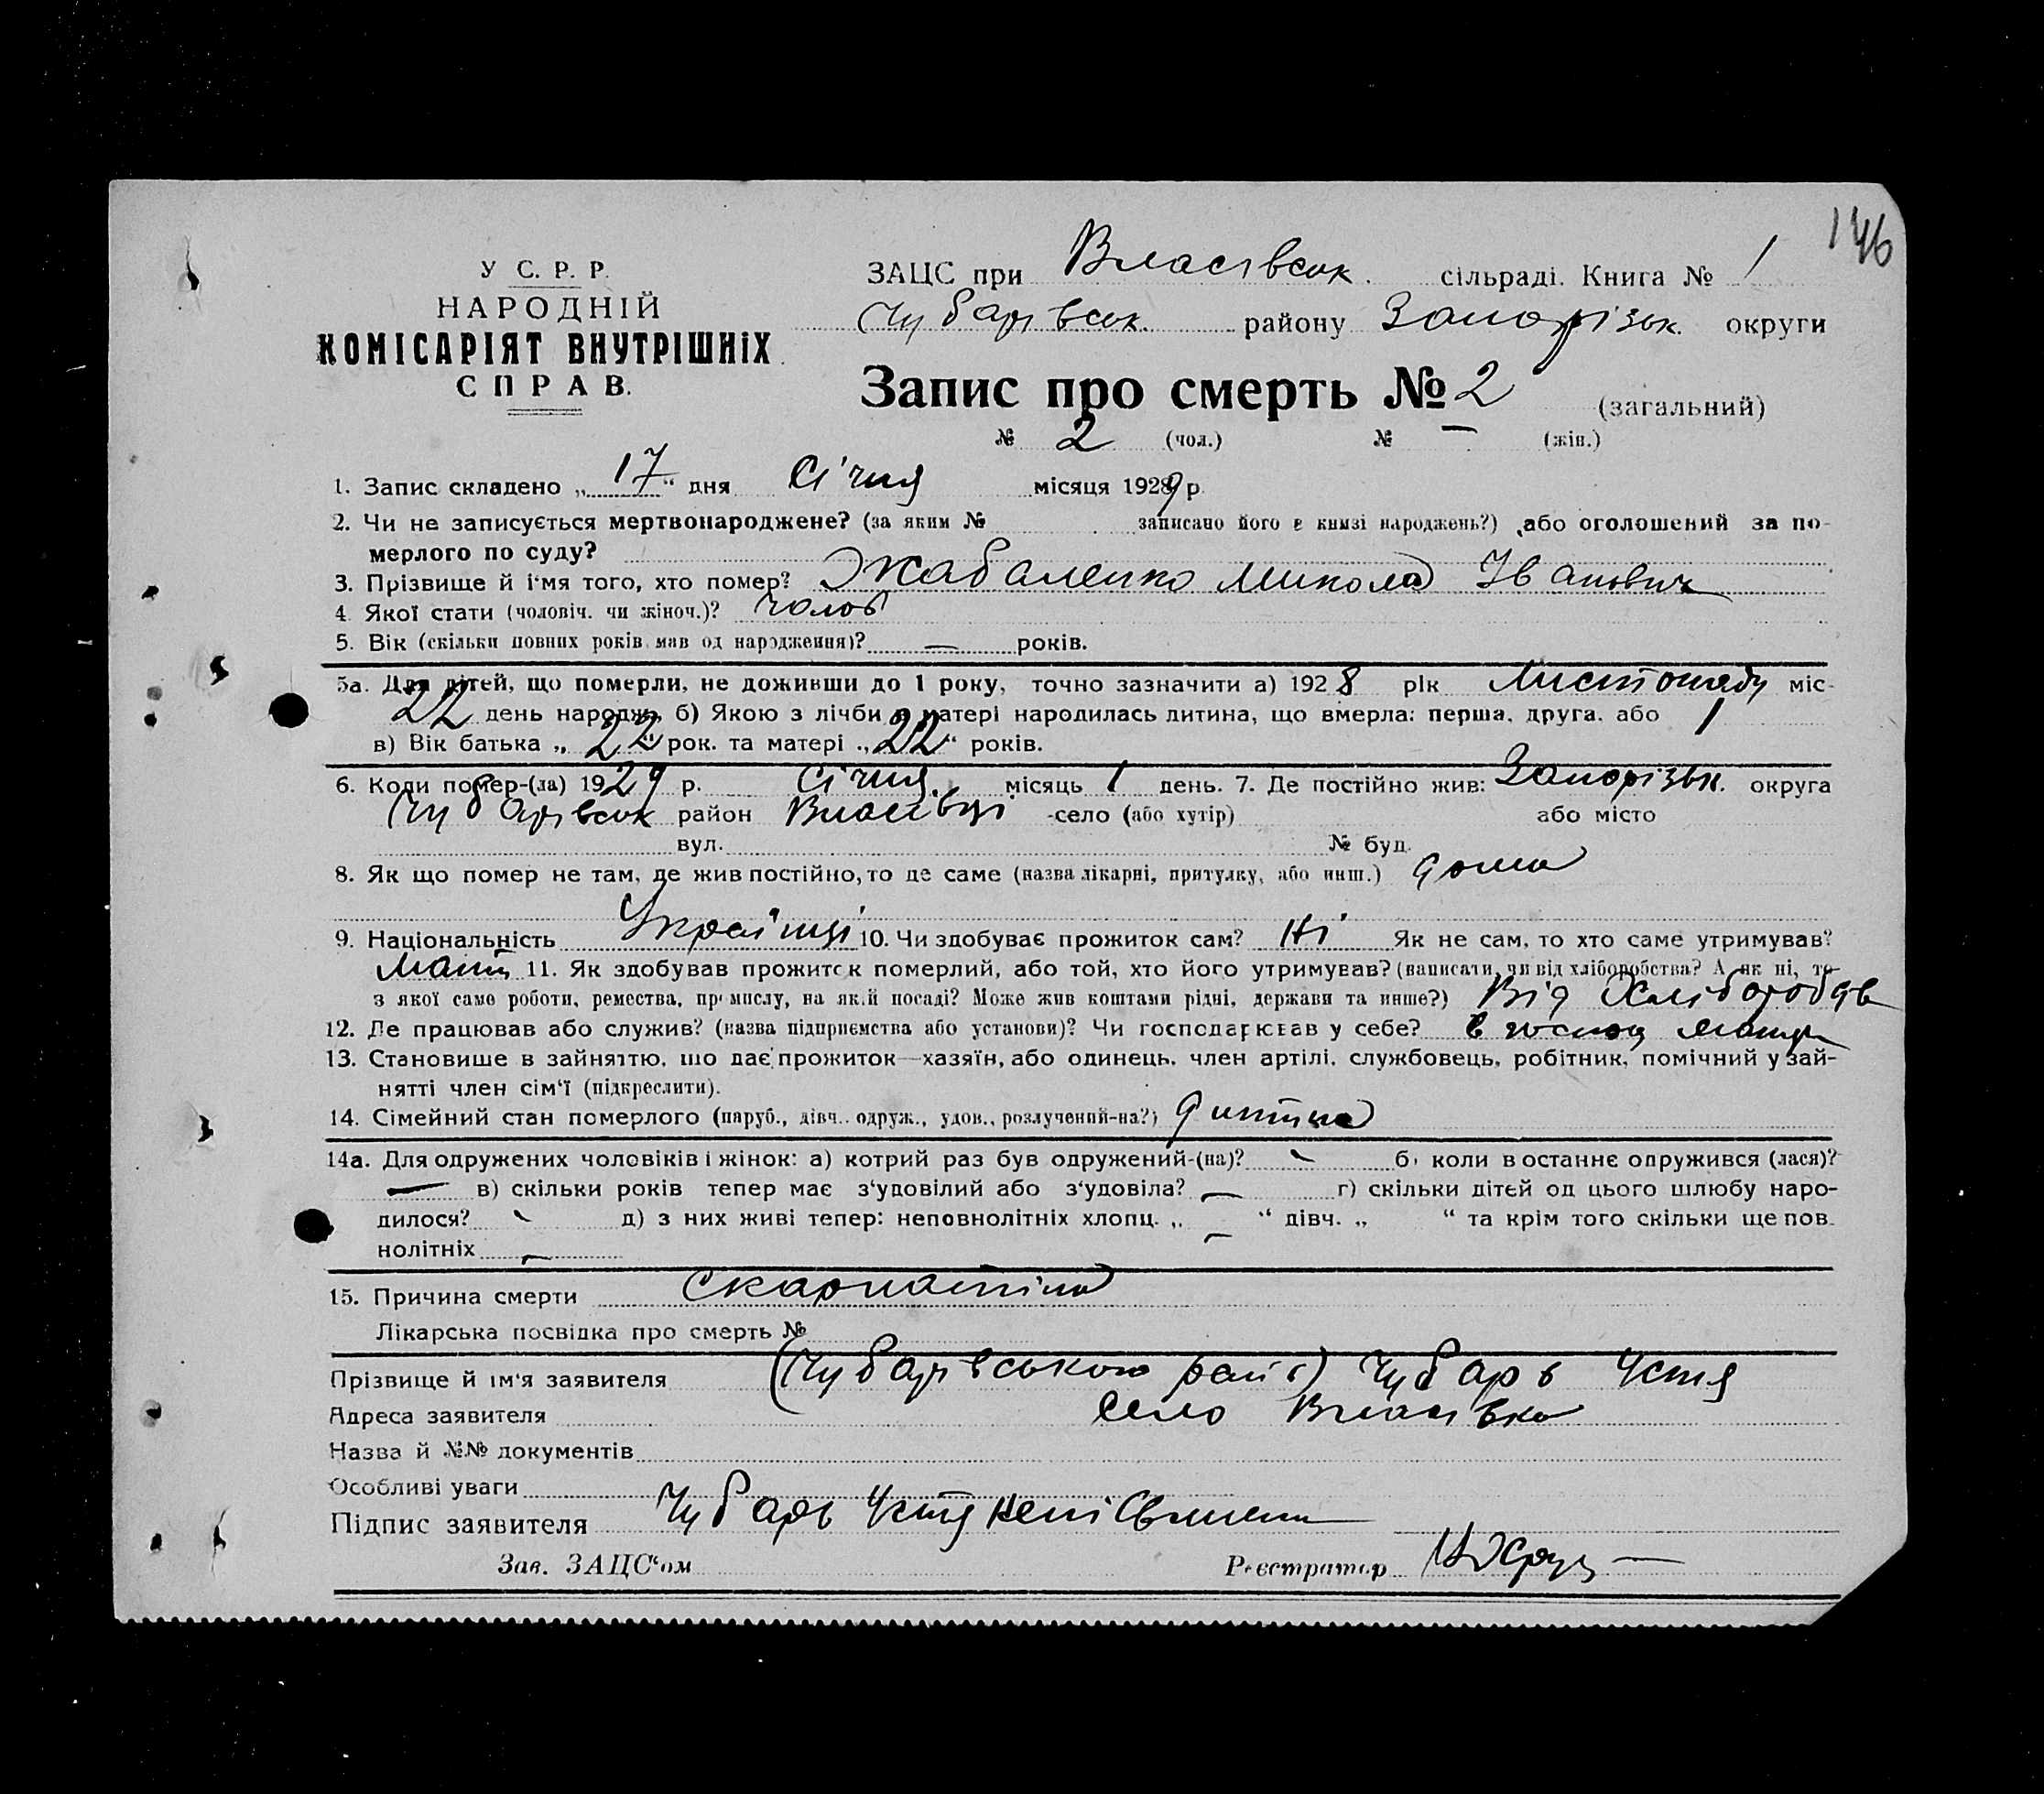 146
У С. Р. Р.
НАРОДНІЙ
КОМІСАРІЯТ ВНУТРІШНІХ
СПРАВ.
ЗАЦС при Власівськ. сільраді. Книга № 1
Чубарівськ. району Запорізьк. округи
Запис про смерть № 2 (загальний)
№ 2 (чол.) № — (жін.)
1. Запис складено „ 17 “ дня Січня місяця 1929 р.
2. Чи не записується мертвонароджене? (за яким № записано його в книзі народжень?) або оголошений за по-
мерлого по суду?
3. Прізвище й ім'я того, хто помер? Жабаленко Микола Іванович
4. Якої стати (чоловіч. чи жіноч.)? чолов
5. Вік (скільки повних років мав од народження)? — років.
5а. Для дітей, що померли, не доживши до 1 року, точно зазначити а) 1928 рік Листопаду міс-
22 день народж. б) Якою з лічби в матері народилась дитина, що вмерла: перша, друга, або 1
в) Вік батька „ 22 “ рок. та матері „ 22 “ років.
6. Коли помер-(ла) 1929 р. Січня місяць 1 день. 7. Де постійно жив: Запорізьк. округа
Чубарівськ район Власівці -село (або хутір) або місто
вул. № буд.
8. Як що помер не там, де жив постійно, то де саме (назва лікарні, притулку, або инш.) дома
9. Національність Українці 10. Чи здобуває прожиток сам? Ні Як не сам, то хто саме утримував?
Мати 11. Як здобував прожиток померлий, або той, хто його утримував? (написати, чи від хліборобства? А як ні, то
з якої саме роботи, ремества, промислу, на якій посаді? Може жив коштами рідні, держави та инше?) Від Хліборобств
12. Де працював або служив? (назва підприємства або установи)? Чи господарював у себе? в господ матери
13. Становище в зайняттю, що дає прожиток—хазяїн, або одинець, член артілі, службовець, робітник, помічний у зай-
нятті член сім'ї (підкреслити).
14. Сімейний стан померлого (паруб., дівч., одруж., удов., розлучений-на?) дитина
14а. Для одружених чоловіків і жінок: а) котрий раз був одружений-(на)? — б) коли в останнє одружився (лася)?
— в) скільки років тепер має з'удовілий або з'удовіла? — г) скільки дітей од цього шлюбу наро-
дилося? — д) з них живі тепер: неповнолітніх хлопц. „ — “ дівч. „ “ та крім того скільки ще пов.
нолітніх —
15. Причина смерти скарлатіна
Лікарська посвідка про смерть №
Прізвище й ім'я заявителя (Чубарівського рай) Чубарь Устя
Адреса заявителя село Власівка
Назва й №№ документів
Особливі уваги
Підпис заявителя Чубарь Устя
Зав. ЗАЦС'ом Реєстратор